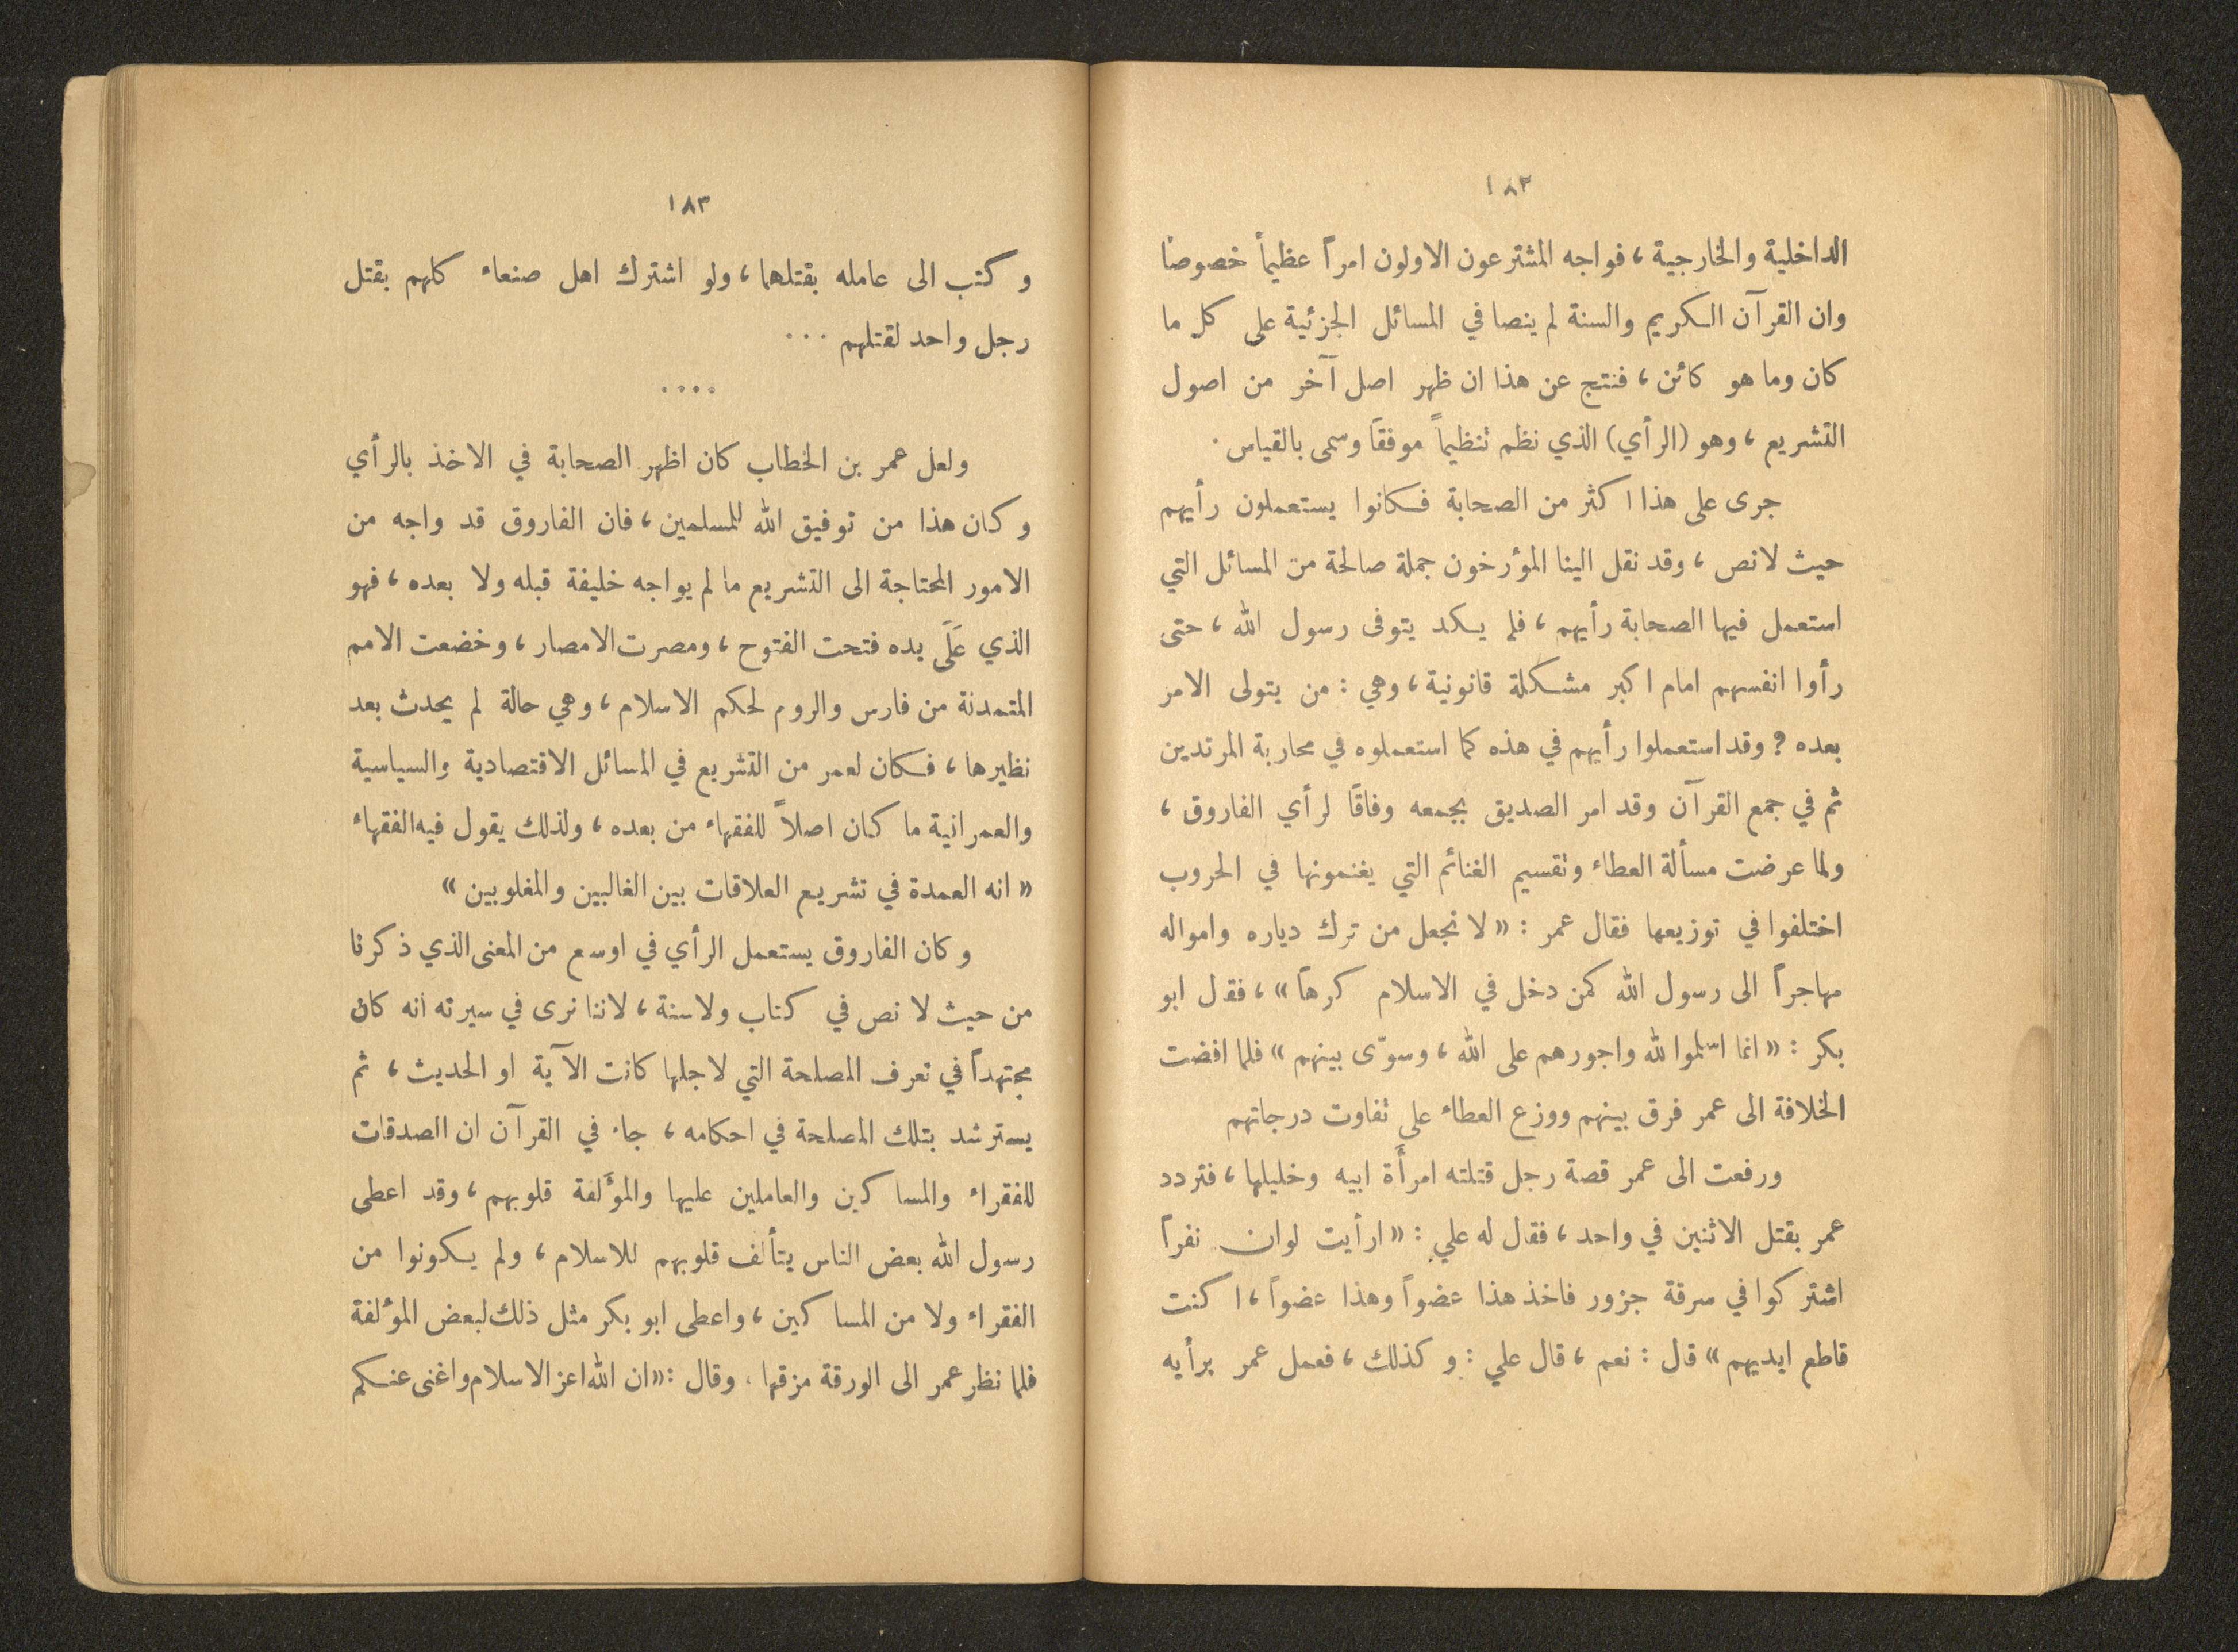 ١٨٢
الداخلية والخارجية، فواجه المشترعون الاولون امراً عظيماً خصوصاً
وان القرآن الكريم والسنة لم ينصا في المسائل الجزئية على كل ما
كان وما هو كائن، فنتج عن هذا ان ظهر اصل آخر من اصول
التشريع، وهو (الرأي) الذي نظم تنظيماً موفقاً وسمى بالقياس.
جرى على هذا اكثر من الصحابة فكانوا يستعملون رأيهم
حيث لا نص، وقد نقل الينا المؤرخون جملة صالحة من المسائل التي
استعمل فيها الصحابة رأيهم، فلم يكد يتوفى رسول الله، حتى
رأوا انفسهم امام اكبر مشكلة قانونية، وهي: من يتولى الامر
بعده؟ وقد استعملوا رأيهم في هذه كما استعملوه في محاربة المرتدين
ثم في جمع القرآن وقد امر الصديق بجمعه وفاقاً لرأي الفاروق،
ولما عرضت مسألة العطاء وتقسيم الغنائم التي يغنمونها في الحروب
اختلفوا في توزيعها فقال عمر: «لا نجعل من ترك دياره وامواله
مهاجراً الى رسول الله كمن دخل في الاسلام كرهاً»، فقال ابو
بكر: «انما اسلموا لله واجورهم على الله، وسوّى بينهم» فلما افضت
الخلافة الى عمر فرق بينهم ووزع العطاء على تفاوت درجاتهم
ورفعت الى عمر قصة رجل قتلته امرأة ابيه وخليلها، فتردد
عمر بقتل الاثنين في واحد، فقال له علي: «ارأيت لو ان نفراً
اشتركوا في سرقة جزور فاخذ هذا عضواً وهذا عضواً، اكنت
قاطع ايديهم» قال: نعم، قال علي: وكذلك، فعمل عمر برأيه
١٨٣
وكتب الى عامله بقتلهما، ولو اشترك اهل صنعاء كلهم بقتل
رجل واحد لقتلهم ...
....
ولعل عمر بن الخطاب كان اظهر الصحابة في الاخذ بالرأي
وكان هذا من توفيق الله للمسلمين، فان الفاروق قد واجه من
الامور المحتاجة الى التشريع ما لم يواجه خليفة قبله ولا بعده، فهو
الذي عَلَى يده فتحت الفتوح، ومصرت الامصار، وخضعت الامم
المتمدنة من فارس والروم لحكم الاسلام، وهي حالة لم يحدث بعد
نظيرها، فكان لعمر من التشريع في المسائل الاقتصادية والسياسية
والعمرانية ما كان اصلاً للفقهاء من بعده، ولذلك يقول فيه الفقهاء
«انه العمدة في تشريع العلاقات بين الغالبين والمغلوبين»
وكان الفاروق يستعمل الرأي في اوسع من المعنى الذي ذكرنا
من حيث لا نص في كتاب ولا سنة، لاننا نرى في سيرته انه كان
مجتهداً في تعرف المصلحة التي لاجلها كانت الآية او الحديث، ثم
يسترشد بتلك المصلحة في احكامه، جاء في القرآن ان الصدقات
للفقراء والمساكين والعاملين عليها والمؤَلفة قلوبهم، وقد اعطى
رسول الله بعض الناس يتألف قلوبهم للاسلام، ولم يكونوا من
الفقراء ولا من المساكين، واعطى ابو بكر مثل ذلك لبعض المؤلفة
فلما نظر عمر الى الورقة مزقها، وقال: «ان الله اعز الاسلام واغنى عنكم